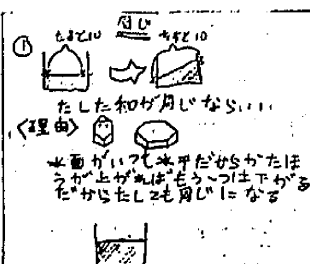 同じ
① たすと10 たすと10
たした和が同じならいい
〈理由〉
水面がいつも水平だからかたほ
うが上がればもう一つは下がる
だからたしても同じになる